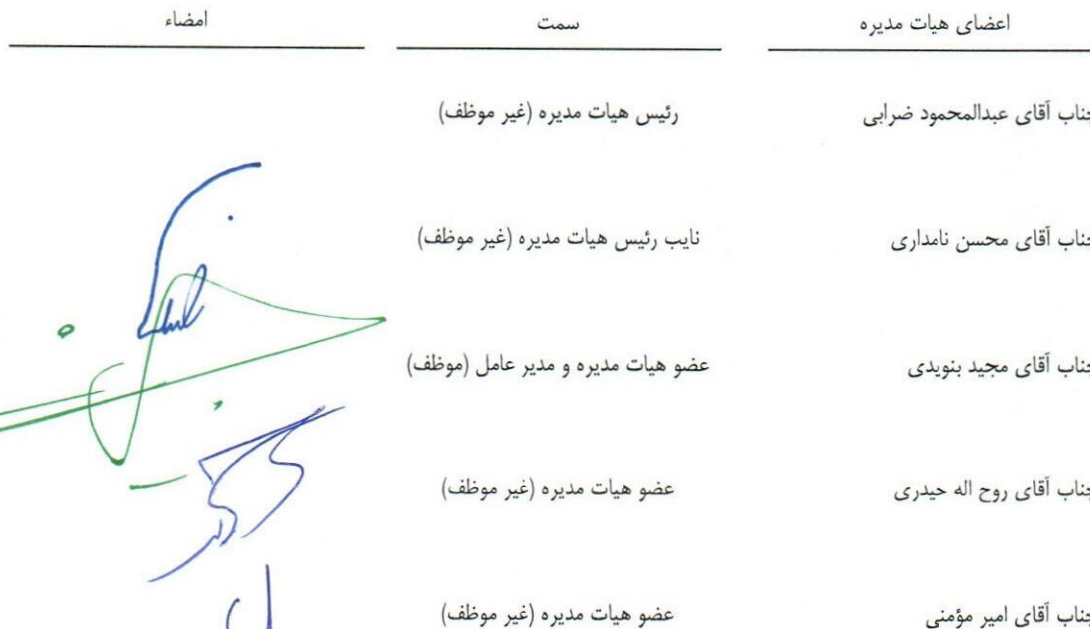 اعضای هیات مدیره سمت امضاء
جناب آقای عبدالمحمود ضرابی رئیس هیات مدیره (غیر موظف)
جناب آقای محسن نامداری نایب رئیس هیات مدیره (غیر موظف)
جناب آقای مجید بنویدی عضو هیات مدیره و مدیر عامل (موظف)
جناب آقای روح اله حیدری عضو هیات مدیره (غیر موظف)
جناب آقای امیر مؤمنی عضو هیات مدیره (غیر موظف)